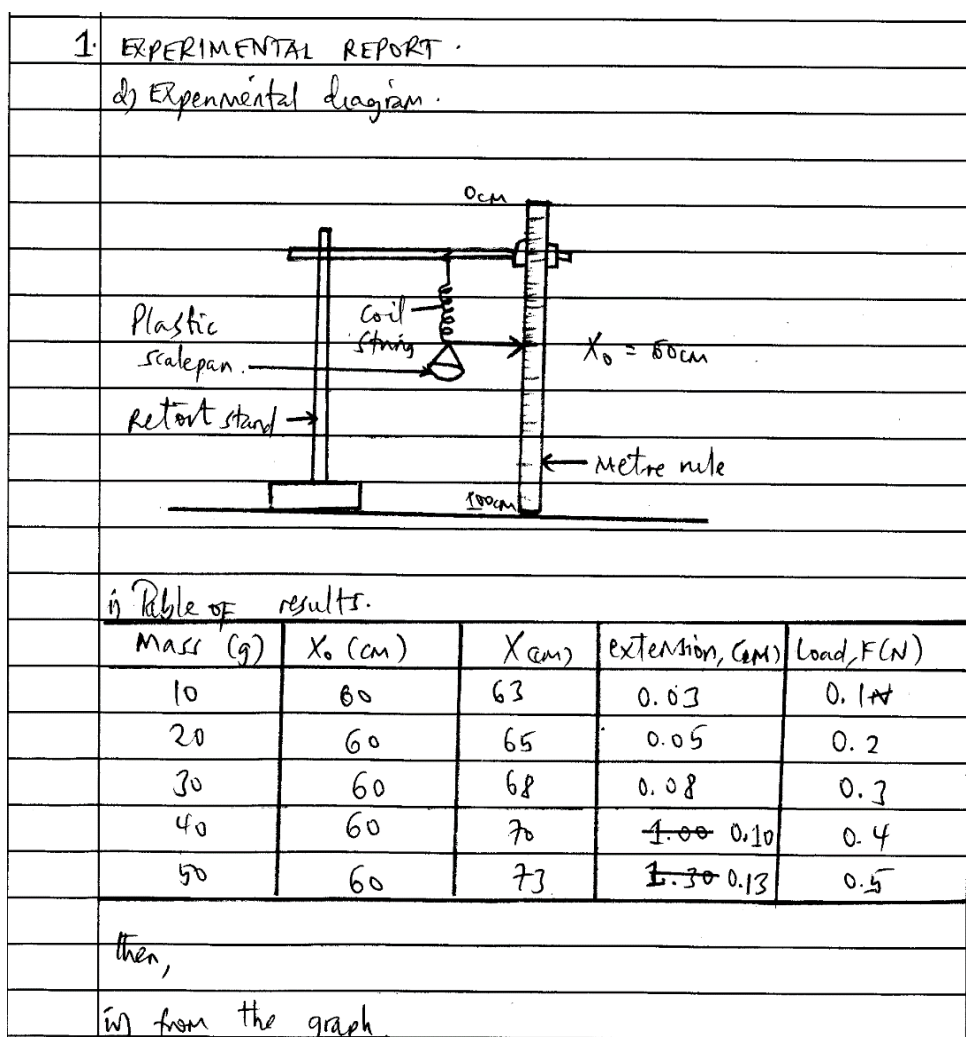 1. EXPERIMENTAL REPORT.
d) Experimental diagram.
0cm
Plastic
scalepan.
coil
string
X₀ = 60cm
Retort stand
Metre rule
100cm
i) Table of results.
Mass (g) X₀ (cm) X (cm) extension, (cm) Load, F(N)
10 60 63 0.03 0.1N
20 60 65 0.05 0.2
30 60 68 0.08 0.3
40 60 70 1.00 0.10 0.4
50 60 73 1.30 0.13 0.5
then,
iv) from the graph.